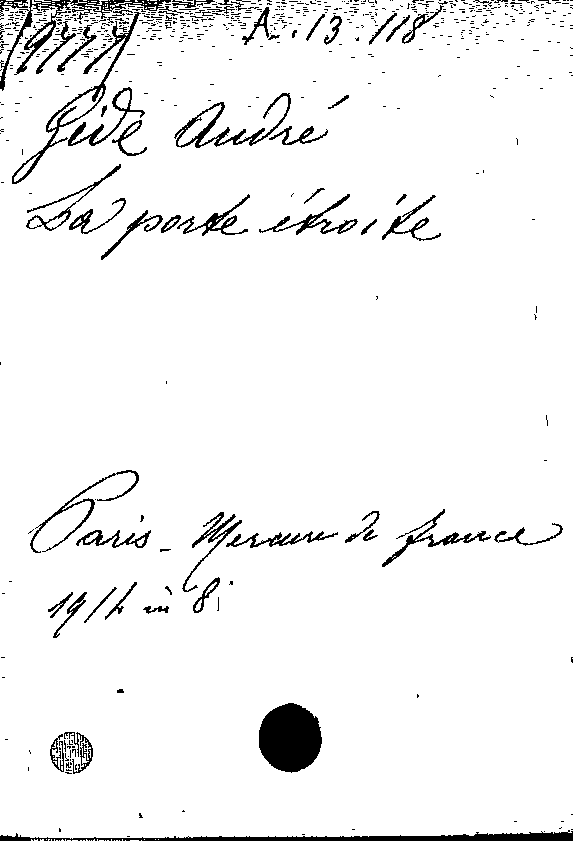 (9777) A. 13. 118
Gide André
La porte étroite
Paris - Mercure de France
1914 in 8: